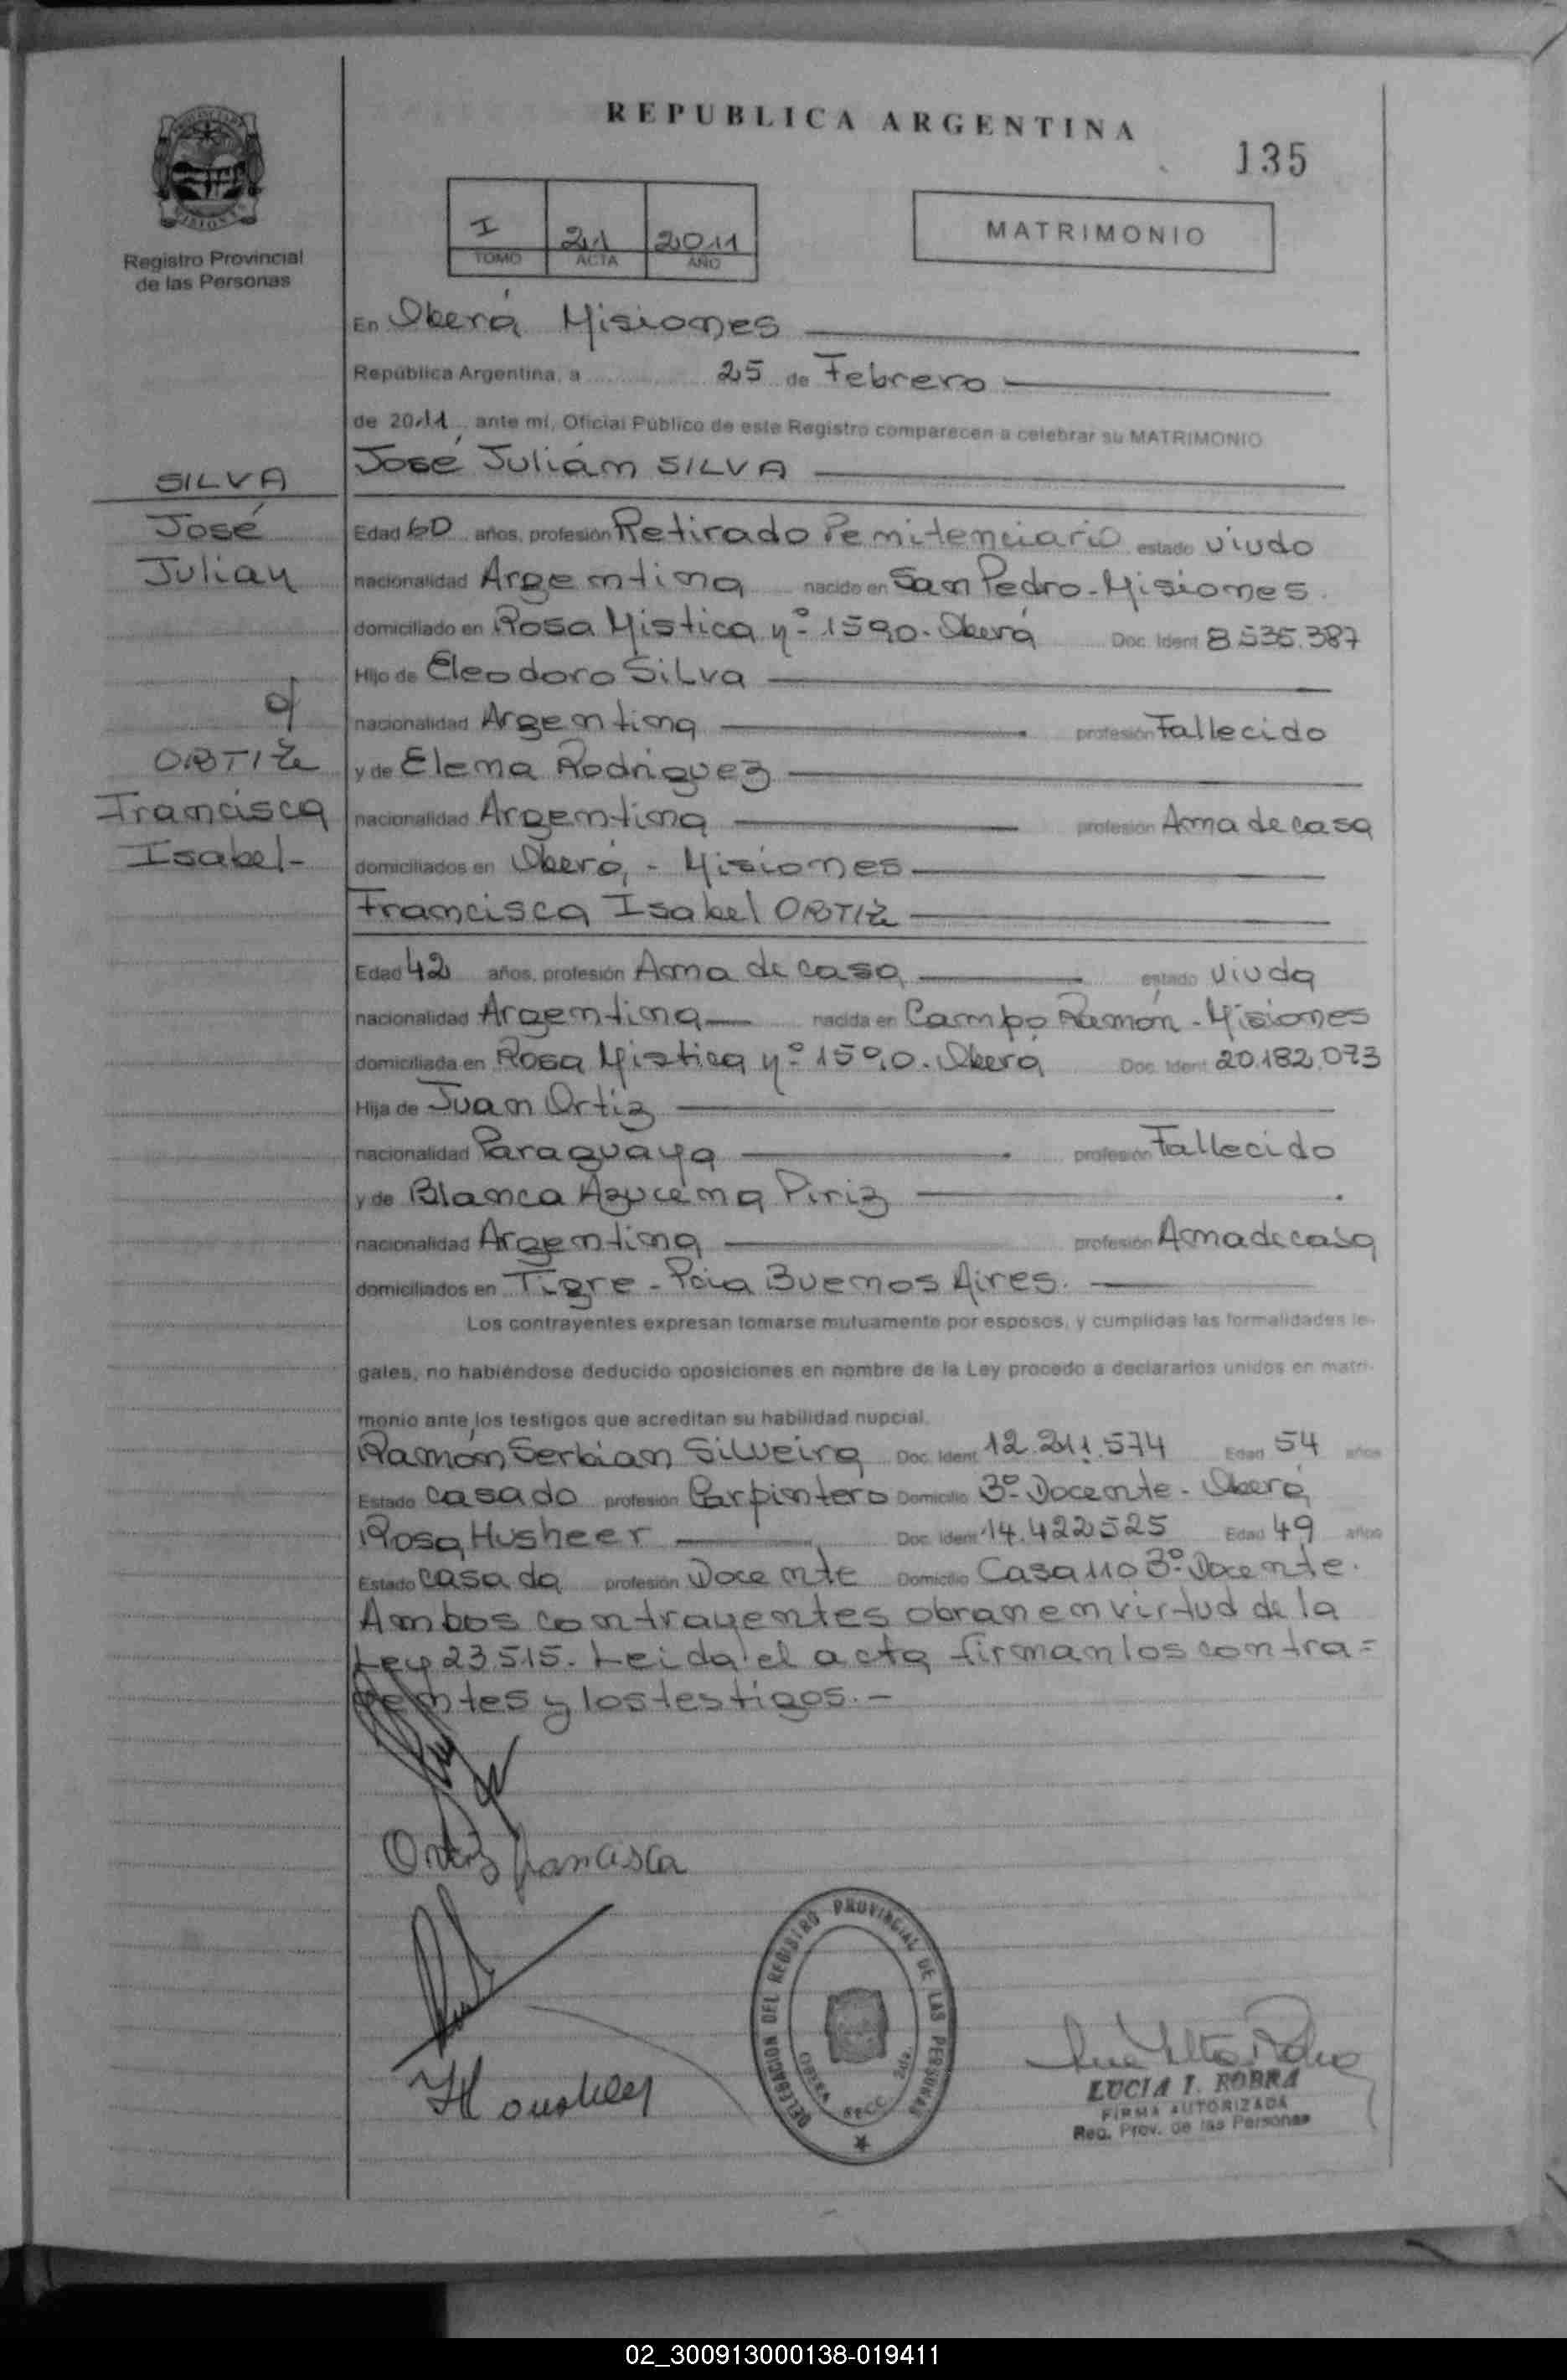 REPUBLICA ARGENTINA
135
I 21 2011
TOMO ACTA AÑO
MATRIMONIO
MISIONES
Registro Provincial
de las Personas
SILVA
José
Julian
c/
ORTIZ
Francisca
Isabel-
En Oberá Misiones
República Argentina, a 25 de Febrero
de 2011, ante mí, Oficial Público de este Registro comparecen a celebrar su MATRIMONIO
José Julián SILVA
Edad 60 años, profesión Retirado Penitenciario estado viudo
nacionalidad Argentina nacido en San Pedro-Misiones.
domiciliado en Rosa Mistica nº 1590. Oberá Doc. Ident 8.535.387
Hijo de Eleodoro Silva
nacionalidad Argentina profesión Fallecido
y de Elena Rodriguez
nacionalidad Argentina profesión Ama de casa
domiciliados en Oberá - Misiones
Francisca Isabel ORTIZ
Edad 42 años, profesión Ama de casa estado viuda
nacionalidad Argentina nacida en Campo Ramón - Misiones
domiciliada en Rosa Mistica nº 1590. Oberá Doc. Ident 20.182.073
Hija de Juan Ortiz
nacionalidad Paraguaya profesión Fallecido
y de Blanca Azucena Piriz
nacionalidad Argentina profesión Ama de casa
domiciliados en Tigre - Pcia Buenos Aires.
Los contrayentes expresan tomarse mutuamente por esposos, y cumplidas las formalidades le-
gales, no habiéndose deducido oposiciones en nombre de la Ley procedo a declararlos unidos en matri-
monio ante los testigos que acreditan su habilidad nupcial.
Ramón Serbian Silveira Doc. Ident 12.211.574 Edad 54 años
Estado casado profesión Carpintero Domicilio 3º Docente - Oberá
Rosa Husheer Doc. Ident 14.422525 Edad 49 años
Estado casada profesión Docente Domicilio Casa 110 3º Docente.
Ambos contrayentes obran en virtud de la
Ley 23515. Leida el acta firman los contra=
yentes y los testigos.-
Ortiz Francisca
DELEGACION DEL REGISTRO PROVINCIAL DE LAS PERSONAS
OBERA SECC. 2da.
LUCIA I. ROBRA
FIRMA AUTORIZADA
Reg. Prov. de las Personas
02_300913000138-019411